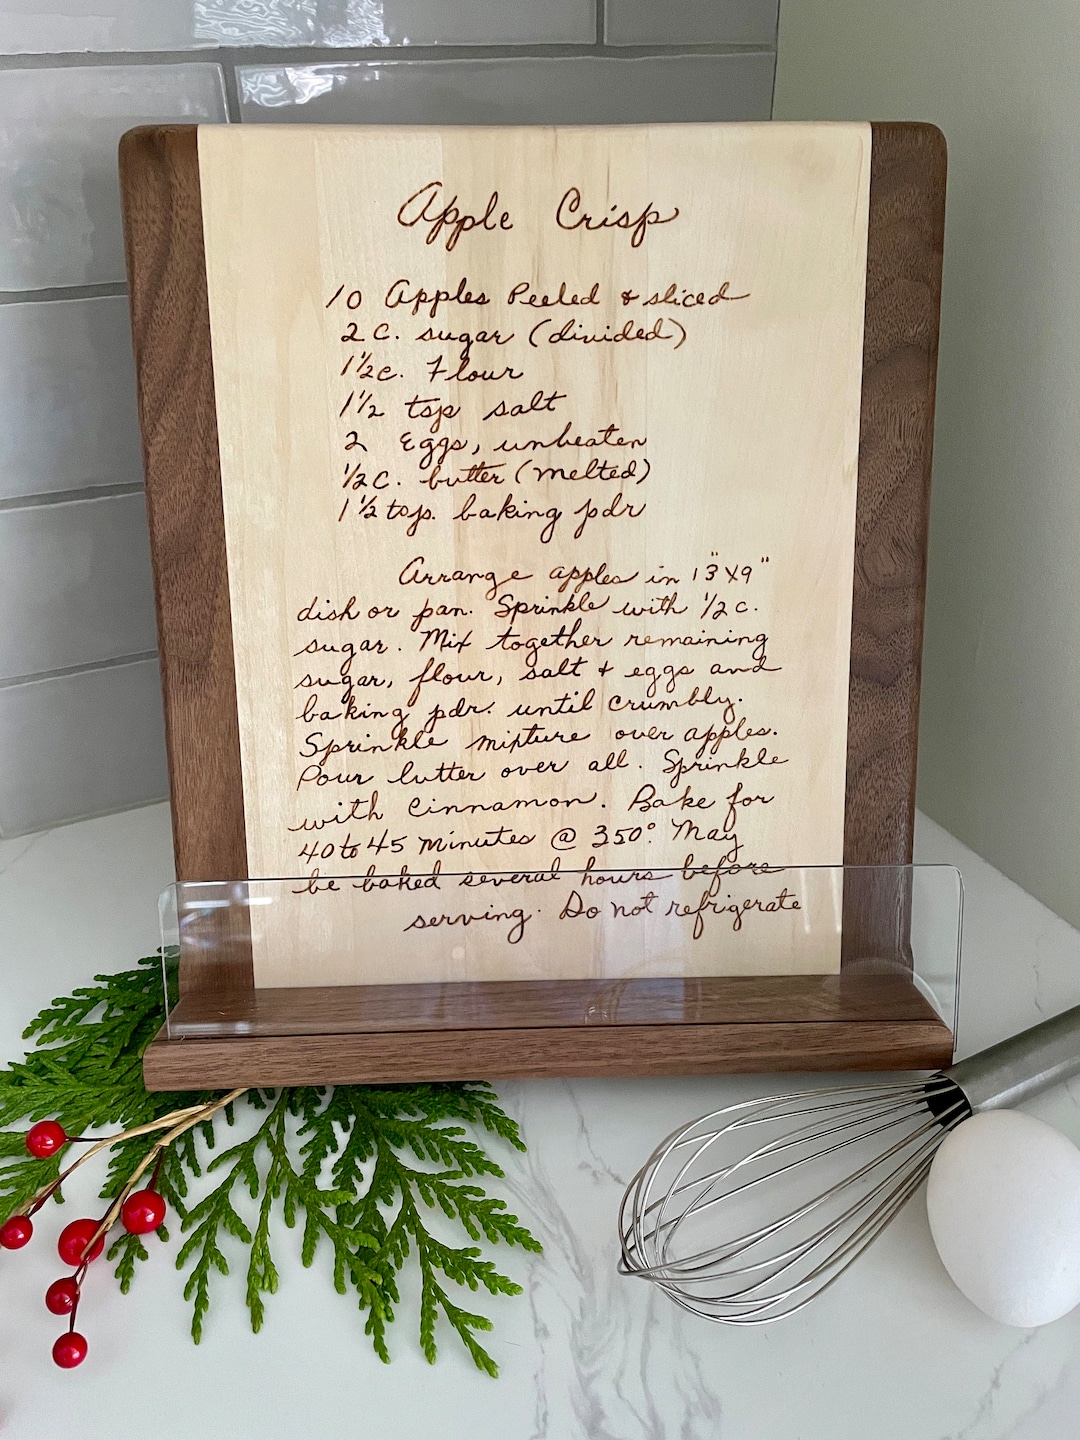 Apple Crisp
10 Apples Peeled & sliced
2 c. sugar (divided)
1 1/2 c. Flour
1 1/2 tsp salt
2 Eggs, unbeaten
1/2 c. butter (melted)
1 1/2 tsp. baking pdr
Arrange apples in 13"x9"
dish or pan. Sprinkle with 1/2 c.
sugar. Mix together remaining
sugar, flour, salt & eggs and
baking pdr. until crumbly.
Sprinkle mixture over apples.
Pour butter over all. Sprinkle
with Cinnamon. Bake for
40 to 45 minutes @ 350°. May
be baked several hours before
serving. Do not refrigerate